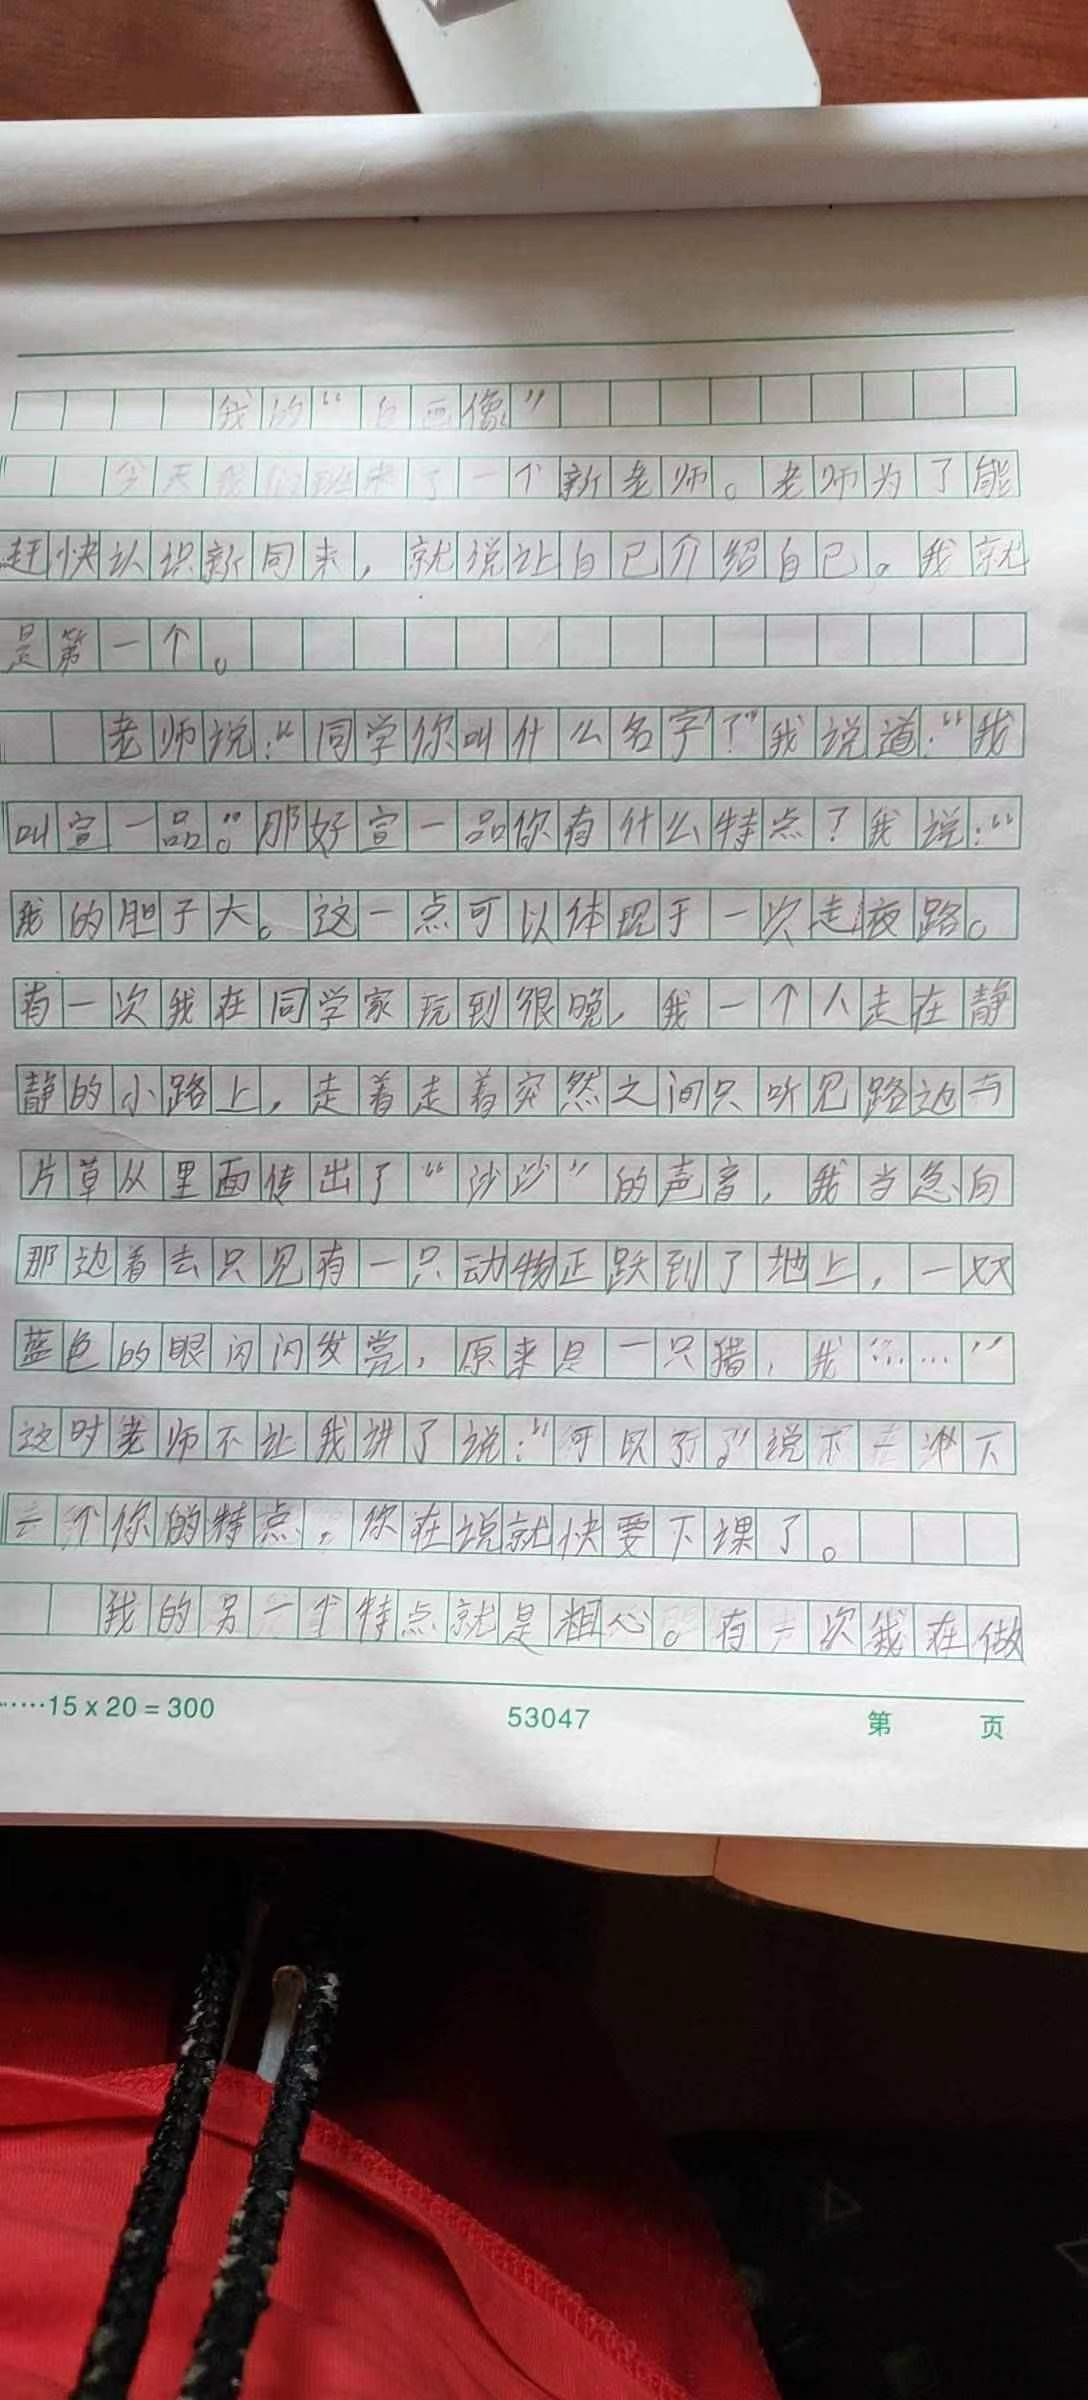 我的“自画像”
今天我们班来了一个新老师。老师为了能
赶快认识新同来，就说让自已介绍自已。我就
是第一个。
老师说：“同学你叫什么名字？”我说道：“我
叫宣一品。”那好宣一品你有什么特点？我说：“
我的胆子大。这一点可以体现于一次走夜路。
有一次我在同学家玩到很晚，我一个人走在静
静的小路上，走着走着突然之间只听见路边与
片草从里面传出了“沙沙”的声音，我当急向
那边看去只见有一只动物正跃到了地上，一双
蓝色的眼闪闪发亮，原来是一只猎，我“……”
这时老师不让我讲了说：“可以了。”说下
一个你的特点，你在说就快要下课了。
我的另一个特点就是粗心。有一次我在做
……15 x 20 = 300 53047 第 页